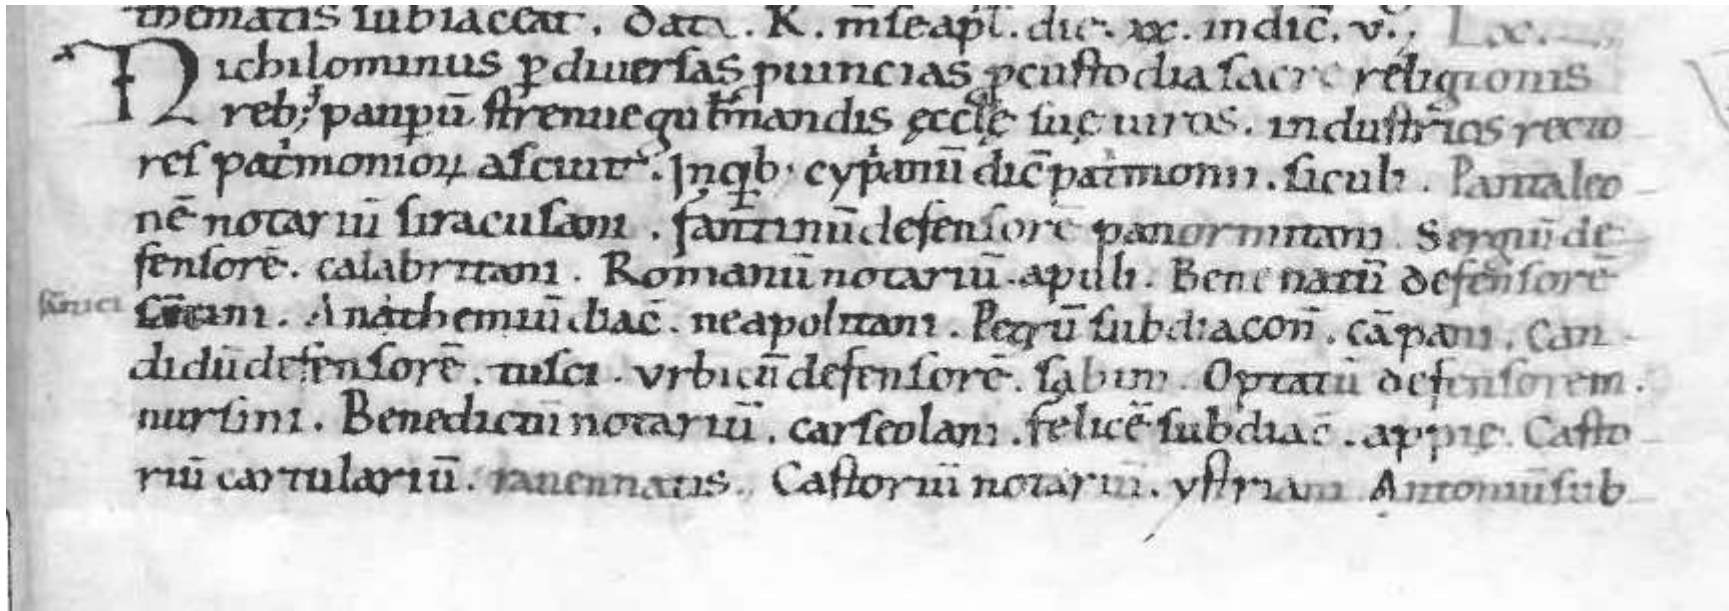 thematis subiaceat. Dat. K. m̄se apł. die. xx. indic̄. v.; Lx.
Nichilominus ꝑ diuersas ꝓuincias ꝓ custodia sacre religionis
reb; pauꝑū strenue gub̄nandis ęccl̄ę suę uiros. industrios recto
res patͥmonioꝝ asciuit. In qͥb; cypͥanū dic̄ patͥmonii. siculi. Pantaleo
nē notariū siracusani. fantinū defensorē panormitani. Sergiū de
fensorē. calabritani. Romanū notariū. apuli. Benenatū defensorē
sāmnici
Anathemiū diac̄. neapolitani. Petrū subdiacon̄. cāpani. Can
didū defensorē. tusci. vrbicū defensorē. sabini. Optatū defensorem.
nursini. Benedictū notariū. carseolani. felicē subdiac̄. appię. Casto
riū cartulariū. rauennatis. Castoriū notariū. ystriani. Antoniū sub